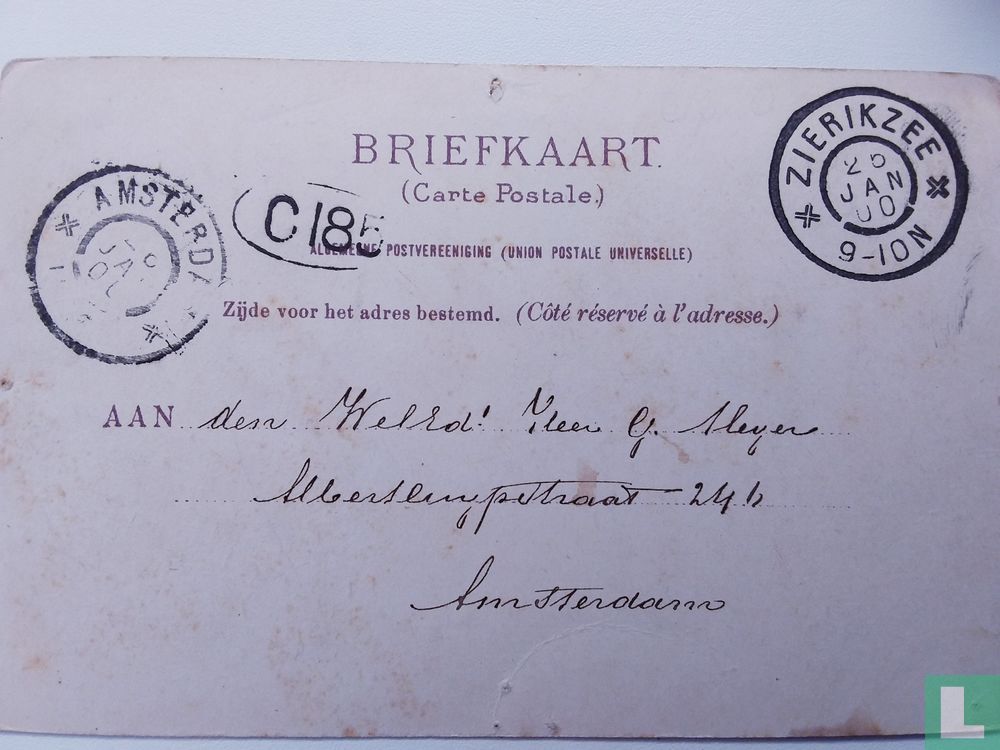 BRIEFKAART.
(Carte Postale.)
ZIERIKZEE
25
JAN
00
9-10N
AMSTERDA
JA
C185
ALGEMEENE POSTVEREENIGING (UNION POSTALE UNIVERSELLE)
Zijde voor het adres bestemd. (Côté réservé à l'adresse.)
AAN den WelEd! Heer G. Meyer
Albert Cuypstraat 24 h
Amsterdam
L